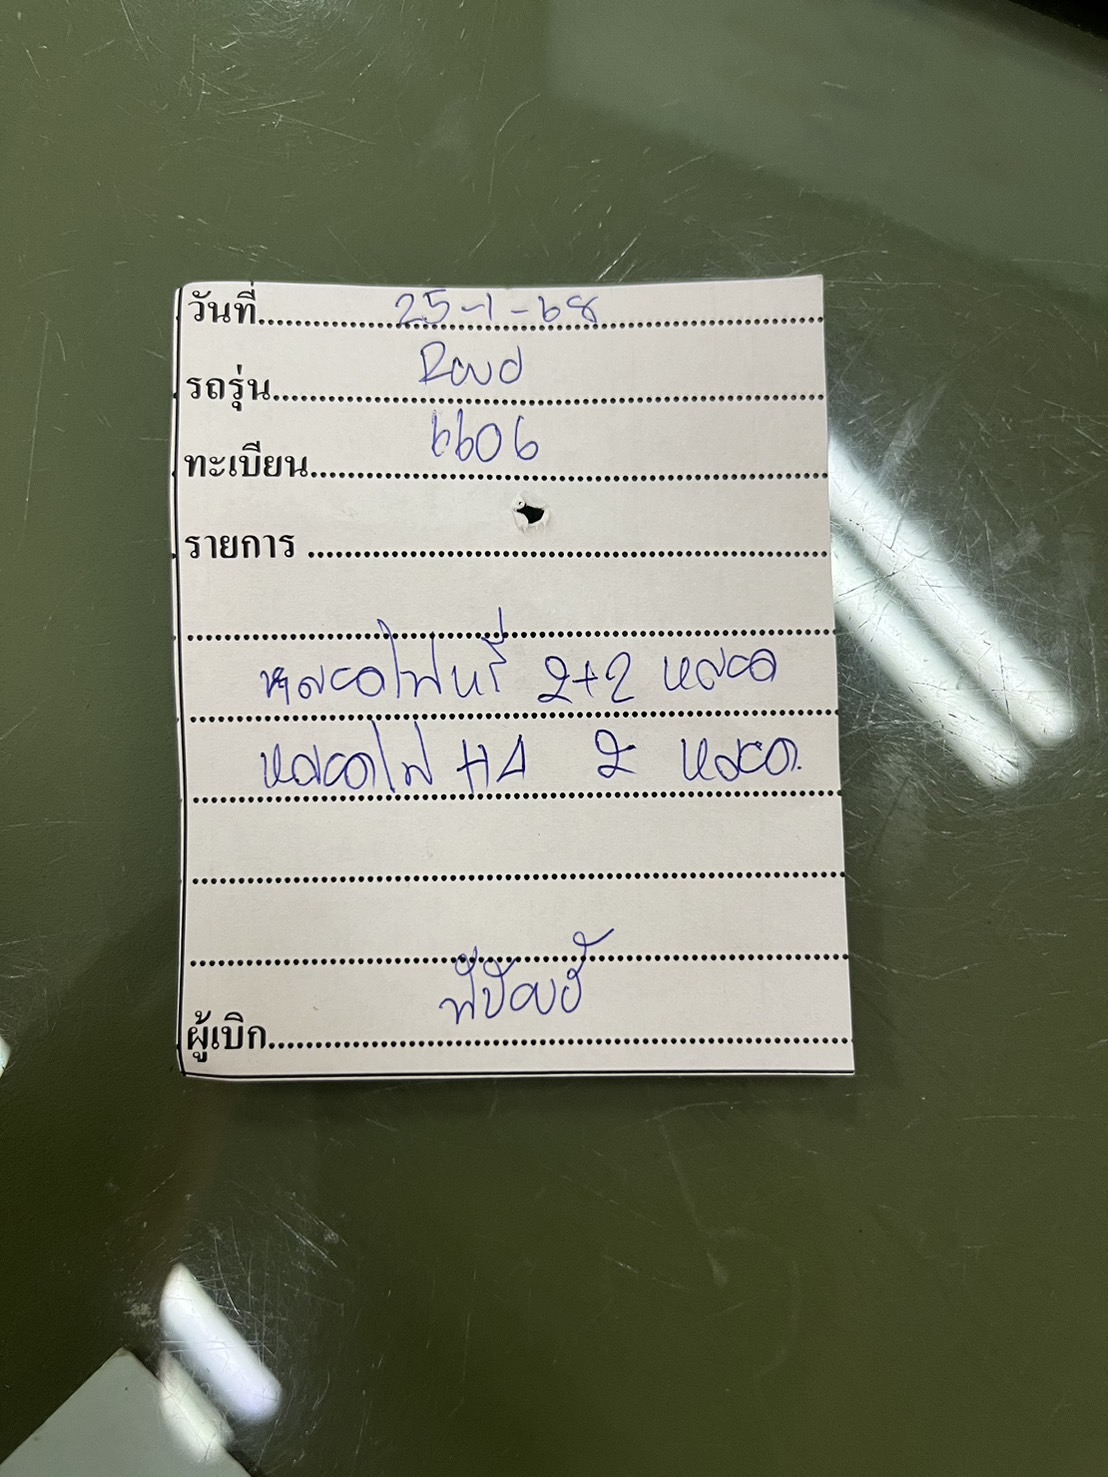 วันที่ 25-1-68
รถรุ่น
ทะเบียน 6606
รายการ
หลอดไฟหรี่ 2+2 หลอด
หลอดไฟ H4 2 หลอด
ผู้เบิก